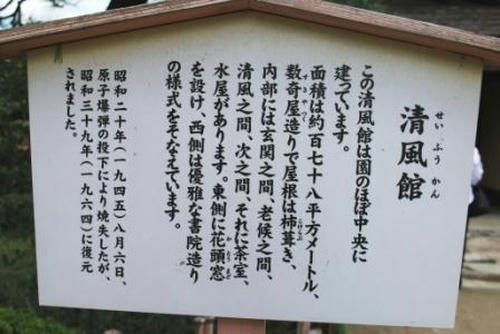 清風館
せいふうかん
この清風館は園のほぼ中央に
建っています。
面積は約百七十八平方メートル、
数奇屋造りで屋根は杮葺き、
すきや
こけらぶ
内部には玄関之間、老候之間、
清風之間、次之間、それに茶室、
水屋があります。東側に花頭窓
かとうまど
を設け、西側は優雅な書院造り
の様式をそなえています。
昭和二十年(一九四五)八月六日、
原子爆弾の投下により焼失したが、
昭和三十九年(一九六四)に復元
されました。